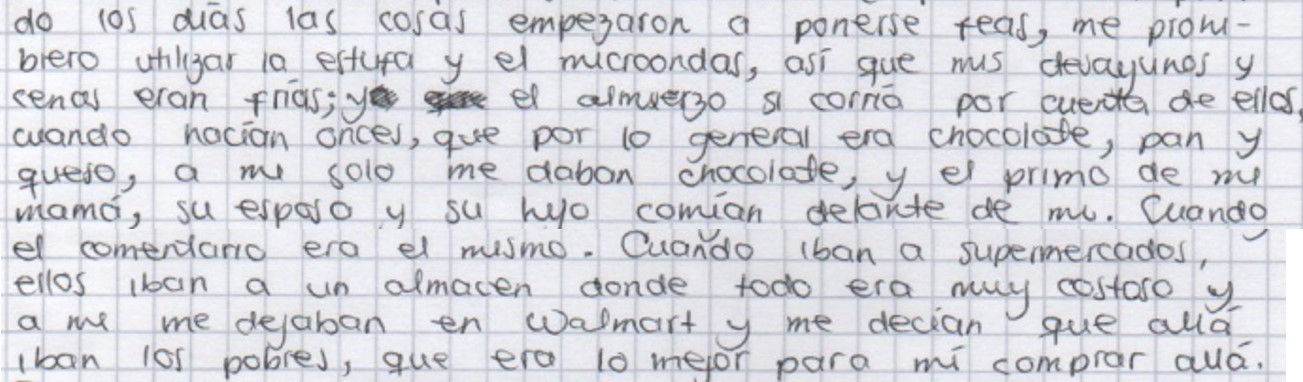 do los días las cosas empezaron a ponerse feas, me prohi-
biero utilizar la estufa y el microondas, así que mis desayunos y
cenas eran frías; y el almuerzo si corría por cuenta de ellos,
cuando hacían onces, que por lo general era chocolate, pan y
queso, a mi solo me daban chocolate, y el primo de mi
mamá, su esposa y su hijo comían delante de mi. Cuando
el comentario era el mismo. Cuando iban a supermercados,
ellos iban a un almacen donde todo era muy costoso y
a mi me dejaban en Walmart y me decían que allá
iban los pobres, que era lo mejor para mí comprar allá.